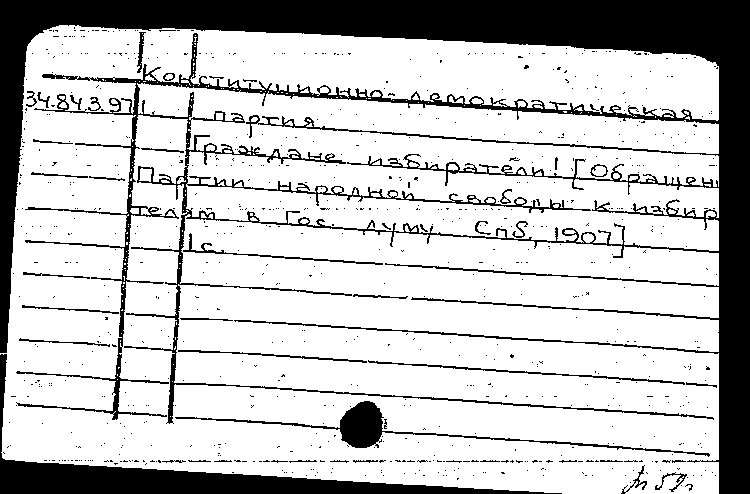 Конституционно-демократическая
34.84.3.971. партия.
Граждане избиратели! [Обращен
Партии народной свободы к избир
телям в Гос. думу. Спб., 1907].
1 с.